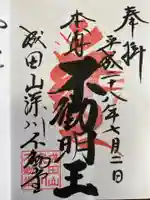 奉拝
平成二十八年七月二日
本尊
不動明王
成田山深川不動堂